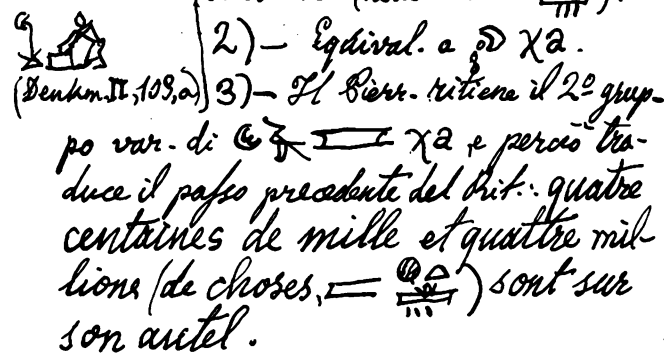 2) — Equival. a χa.
(Denkm. II, 109, a) 3) — Il Pierr. ritiene il 2º grup-
po var. di χa, e perciò tra-
duce il passo precedente del Rit.: quatre
centaines de mille et quattre mil-
lions (de choses, ) sont sur
son autel.